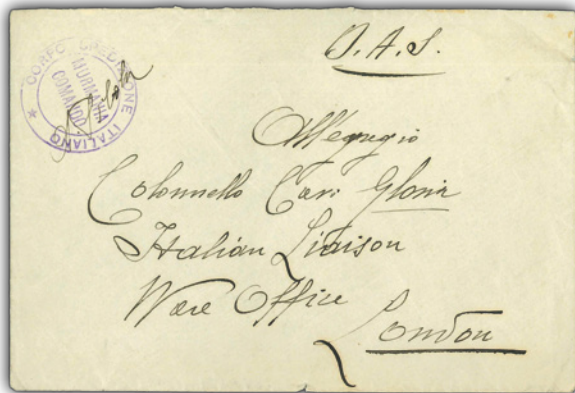 O.A.S.
CORPO SPEDIZIONE ITALIANO
MURMANIA
COMANDO
All'egregio
Colonnello Cav: Gloria
Italian Liaison
Ware Office
London